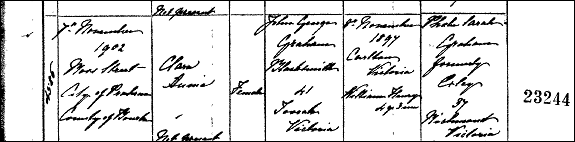 Not present
7th November
1902
Moss Street
City of Prahran
County of Bourke
Clara
Annie
Not present
Female
John George
Graham
Blacksmith
41
Toorak
Victoria
8th November
1897
Carlton
Victoria
William Henry
4 yrs
Graham
formerly
37
Richmond
Victoria
23244